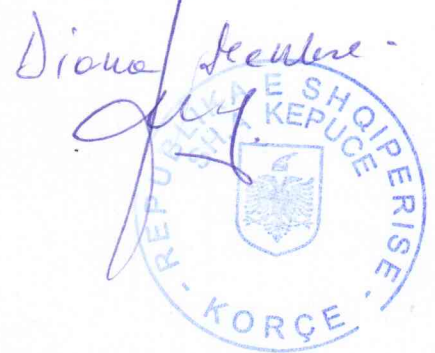 Diana
REPUBLIKA E SHQIPERISE
SH.A KEPUCE
- KORÇE -